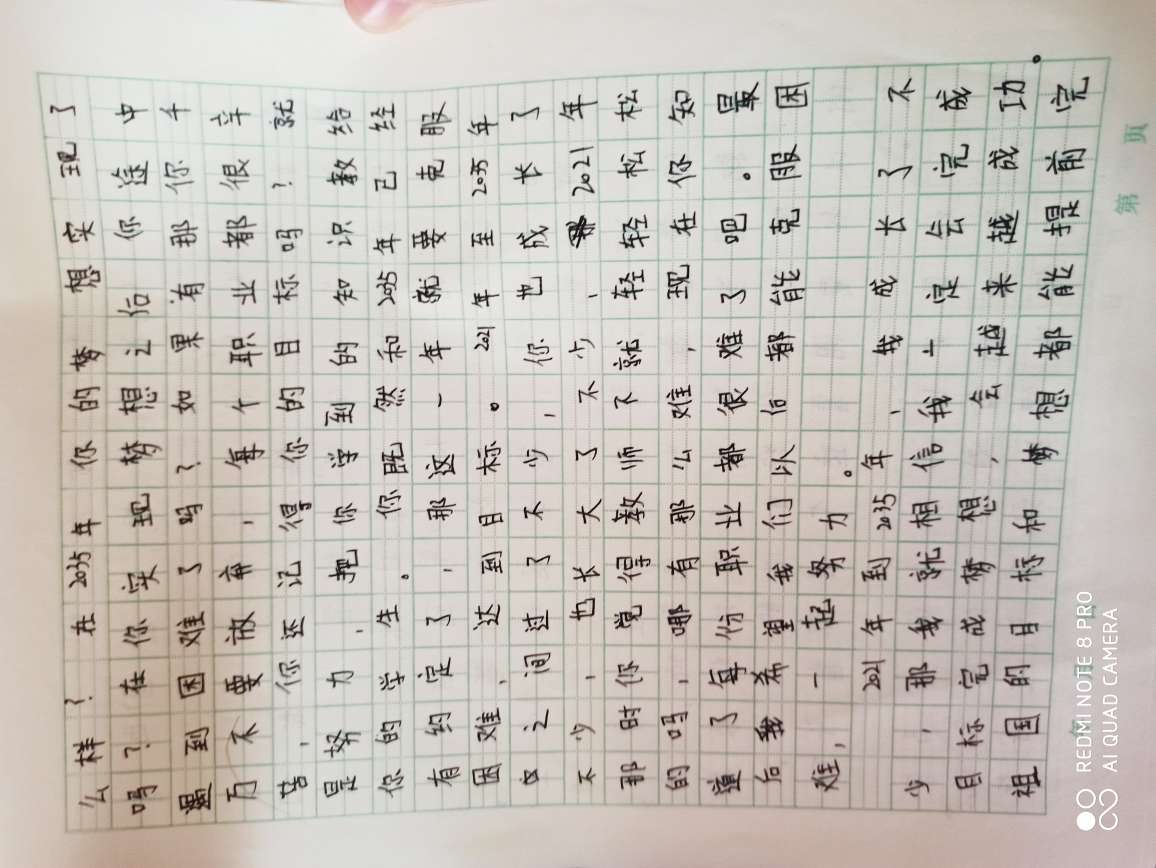 么样?在2035年你的梦想实现了
吗?在你实现梦想之后你途中
遇到困难了吗?如果有那你千
万不要放弃,每个职业都很辛
苦,你还记得你的目标吗?就
是努力,把你学到的知识教给
你的学生。你既然和2035年已经
有约定了,那这一年就要克服
困难,达到目标。2021年至2035年
中之间过了不少,你也成长了
不少,也长大了不少,2021年
那时你觉得教师不就轻轻松松
的吗,哪有那么难,现在你知
道了每份职业都很难了吧。最
后我希望我们以后都能克服困
难,一起努力。
2021年到2035年,我成长了不
少,那我就相信我一定会完成
目标完成梦想,会越来越成功。
祖国的目标和梦想都能提前完
第 页
REDMI NOTE 8 PRO
AI QUAD CAMERA